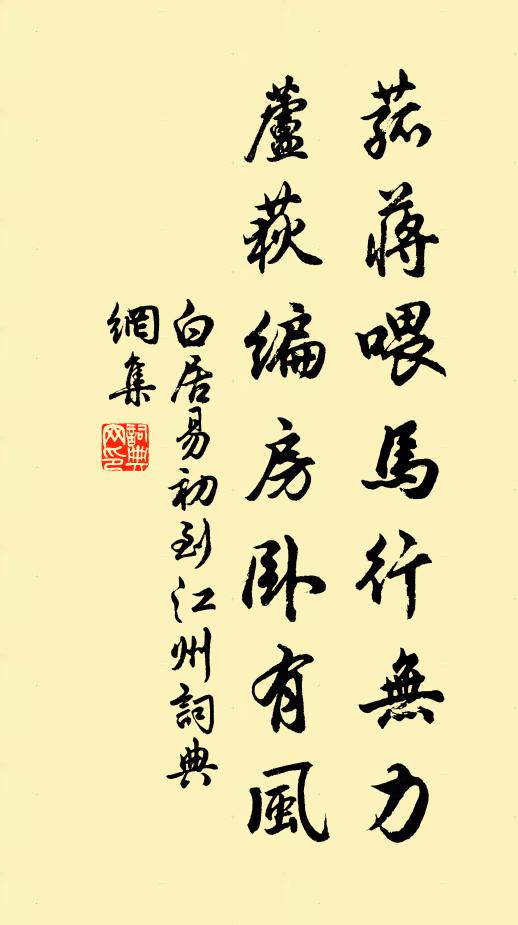 菰蔣喂馬行無力
蘆荻編房卧有風
白居易初到江州詞典
網集
詞典網印